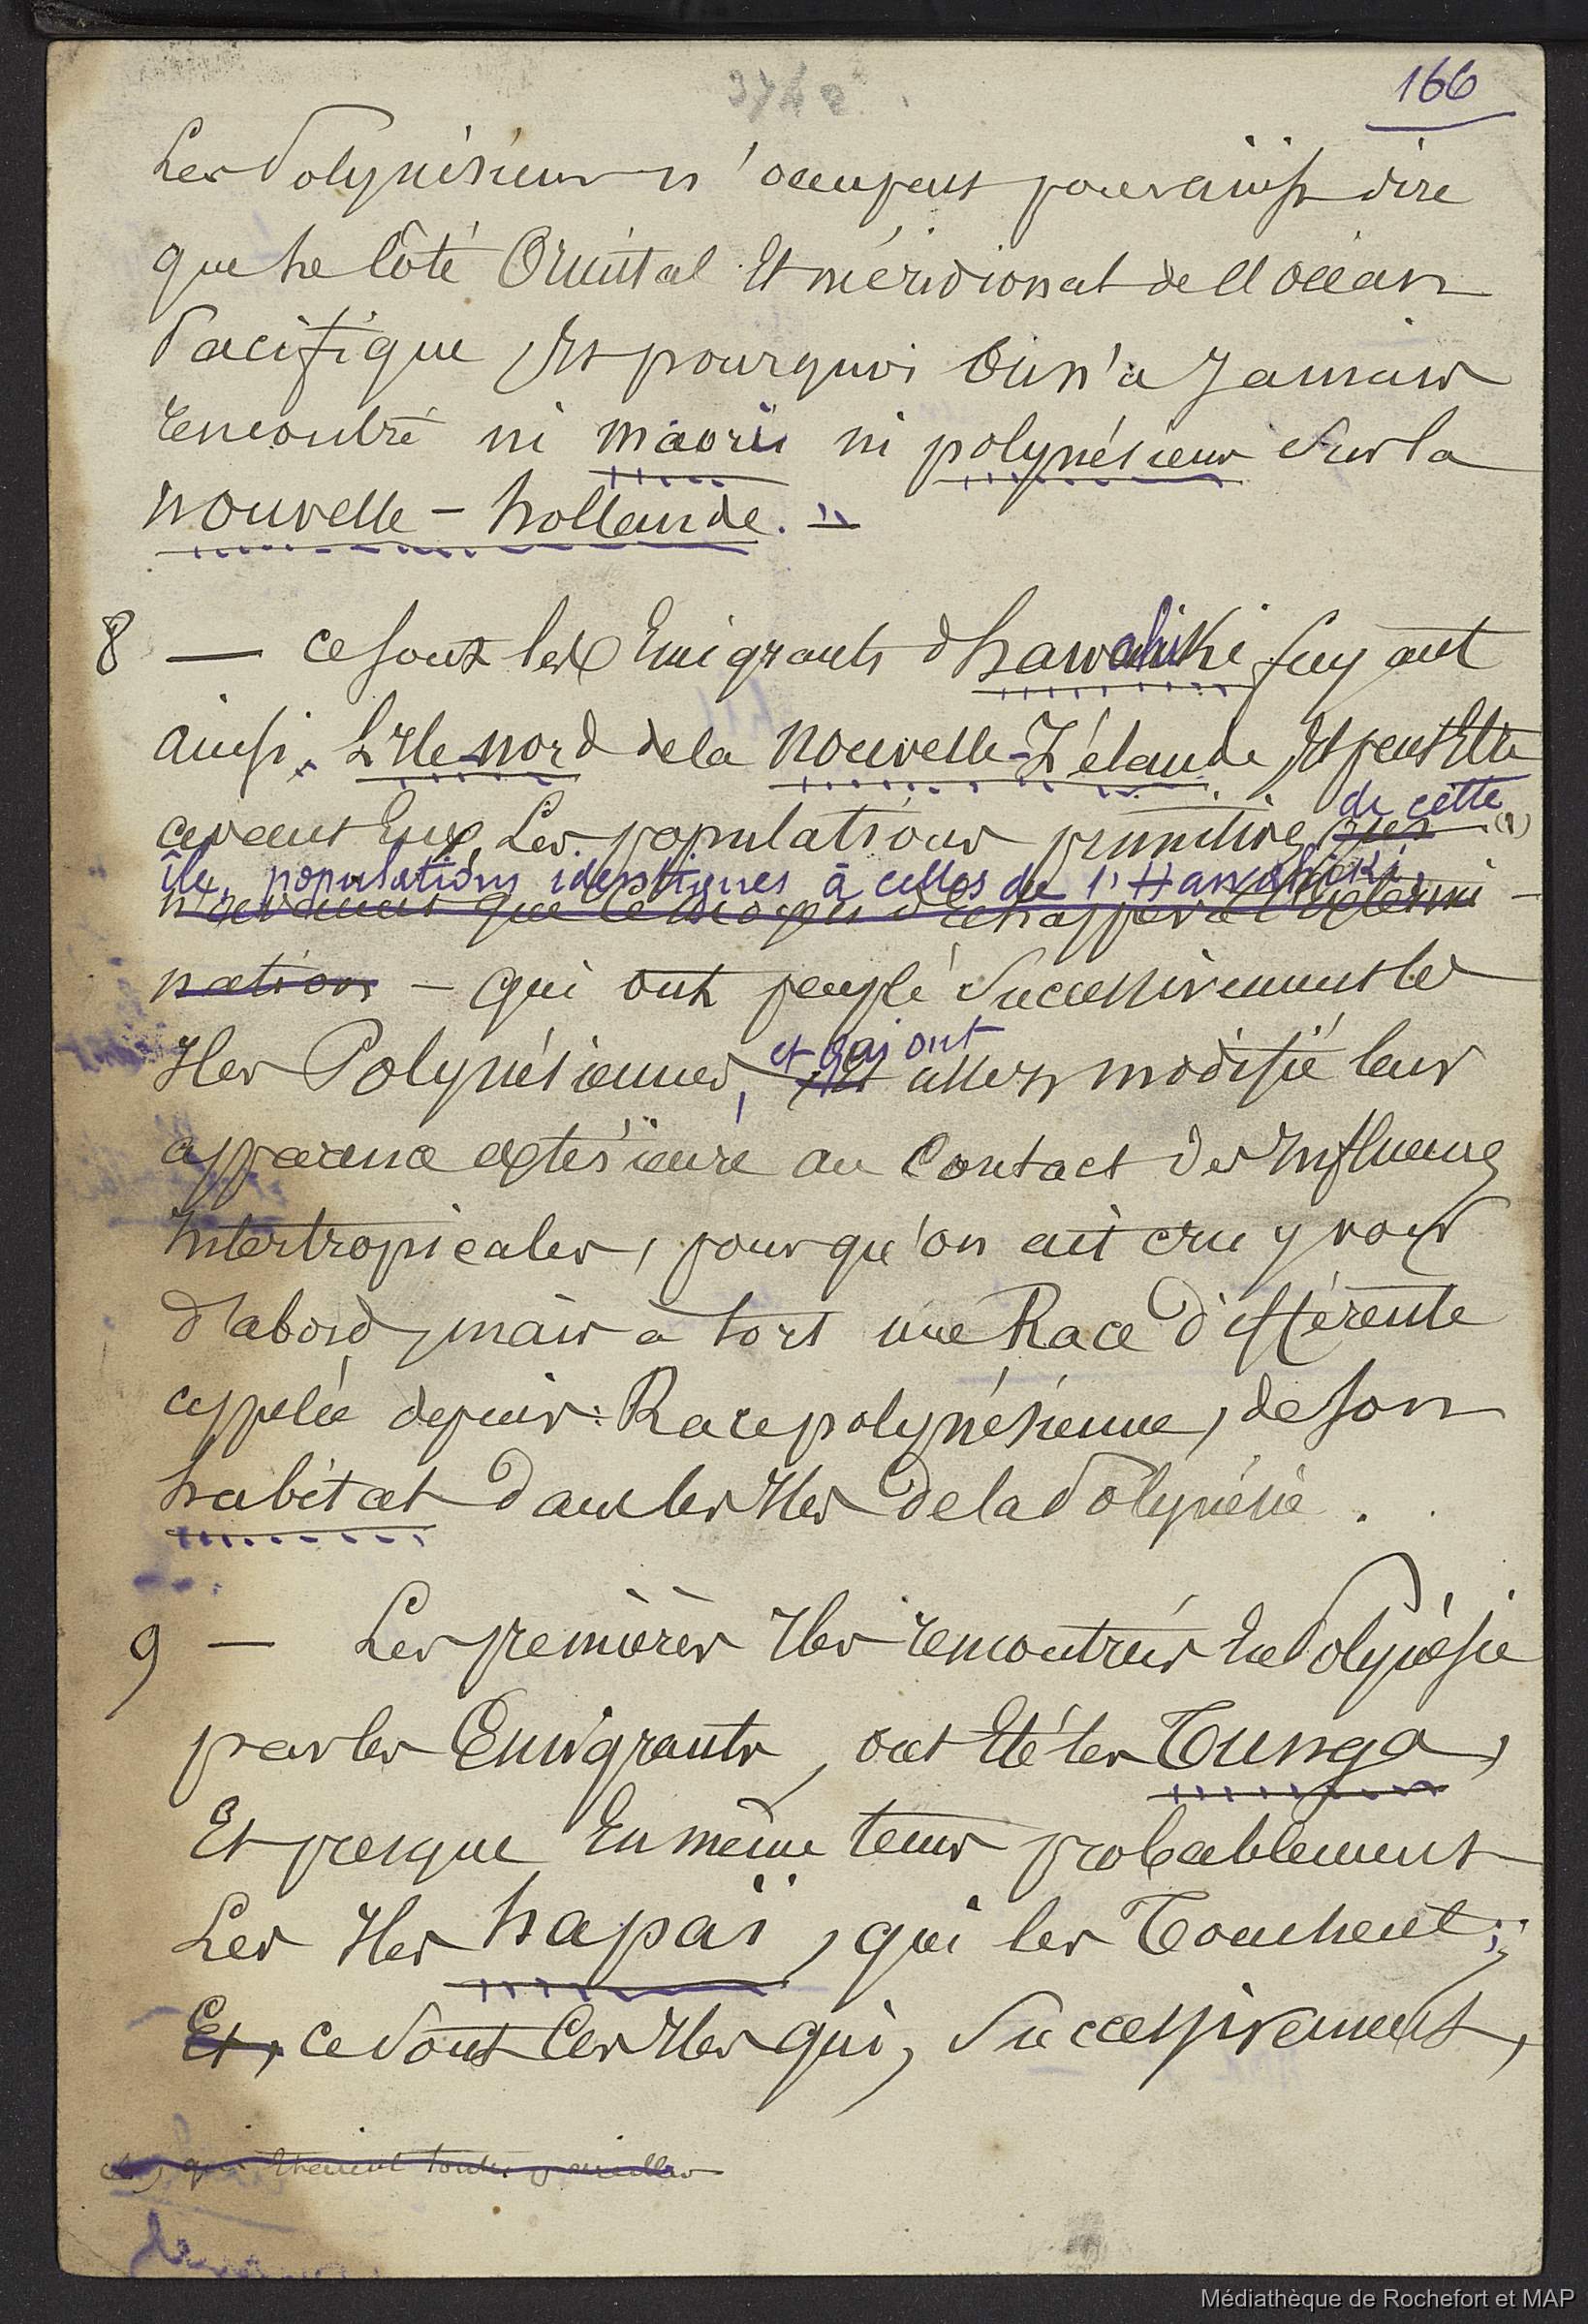 374²
166
Les Polynésiens n'occupent pour ainsi dire
que le Côté Oriental Et méridional de l'océan
Pacifique, Et pourquoi On n'a Jamais
rencontré ni maoris ni polynésiens Sur la
nouvelle-hollande. "
8 — ce sont les Emigrants d'hawahiki fuyant
ainsi, L'Ile-nord de la nouvelle-Zélande, Et peut Etre
avant Eux, Les populations primitives de cette (1)
île, populations identiques à celles de l'Hawahiki,
n'avaient que le moyen d'échapper à l'extermi-
nation — qui ont peuplé Successivement les
Iles Polynésiennes, et qui ont assez modifié leur
apparence extérieure au Contact des Influences
Intertropicales, pour qu'on ait cru y voir
d'abord, mais à tort une Race différente
appelée depuis: Race polynésienne, de son
habitat dans les Iles de la Polynésie.
9 — Les premières Iles rencontrées En Polynésie
par les Emigrants, ont Eté les Tunga,
Et presque En même tems probablement
Les Iles hapaï, qui les Touchent;
Et, ce Sont Ces Iles qui, Successivement,
qui Etaient toutes pareilles
Médiathèque de Rochefort et MAP